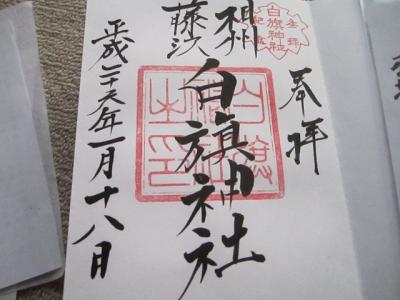 奉拝
相州
藤沢
白旗神社
平成二十六年一月十八日
参拝
記念
白旗神社
白旗
神社
之印